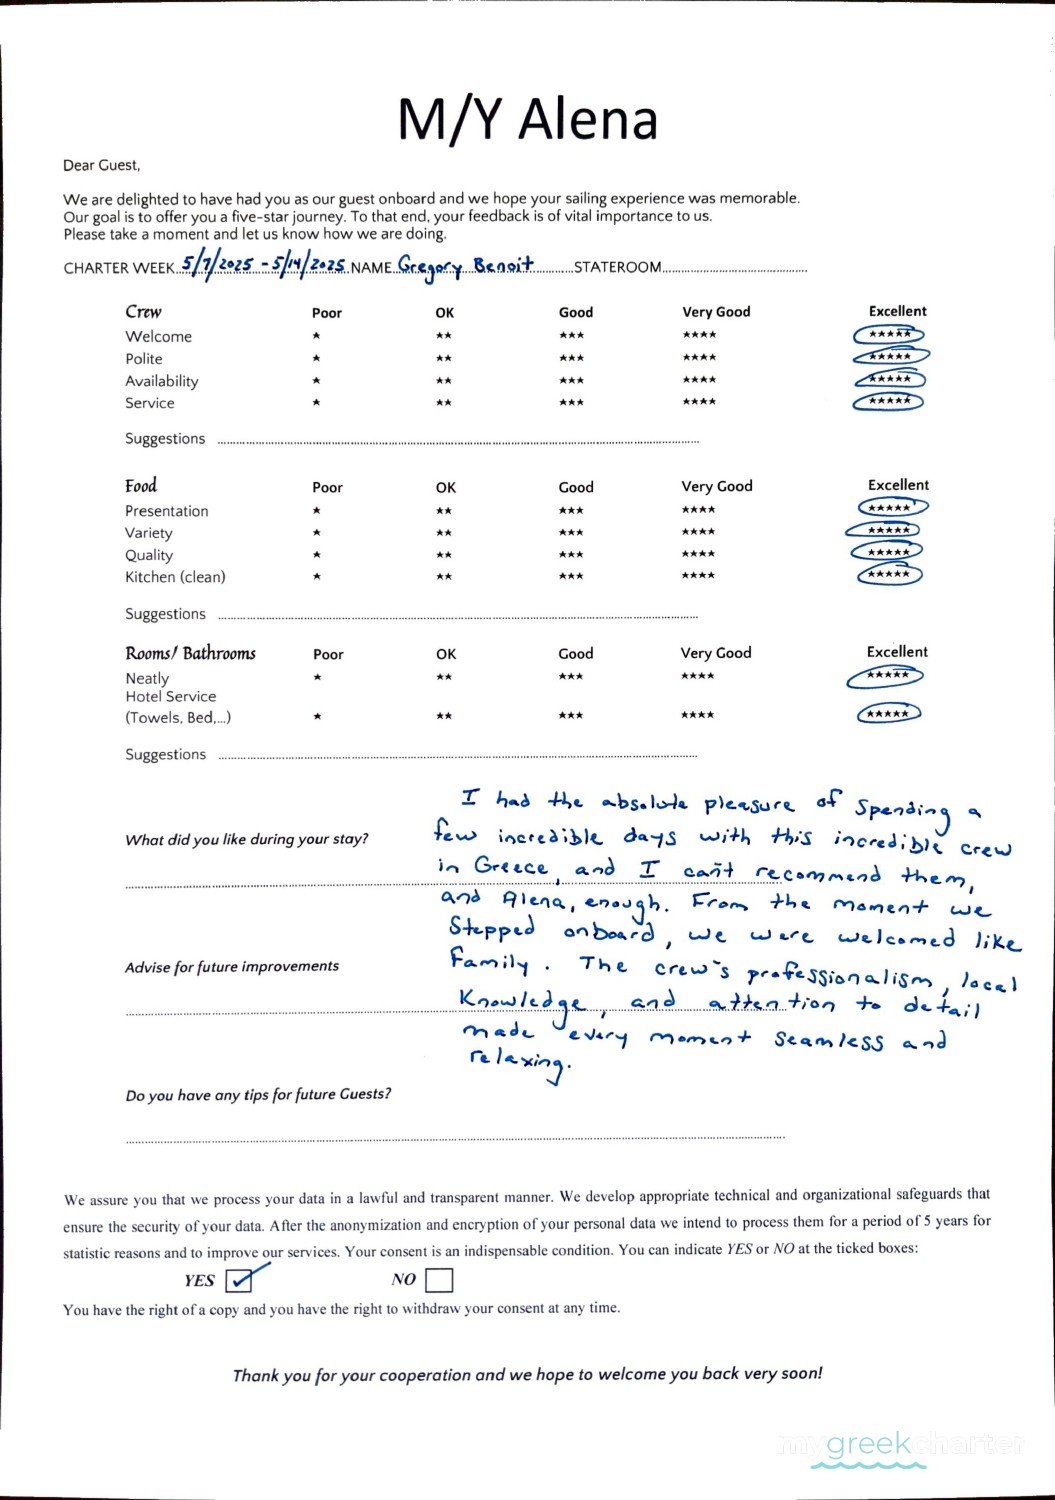 M/Y Alena
Dear Guest,
We are delighted to have had you as our guest onboard and we hope your sailing experience was memorable.
Our goal is to offer you a five-star journey. To that end, your feedback is of vital importance to us.
Please take a moment and let us know how we are doing.
CHARTER WEEK 5/7/2025 - 5/14/2025 NAME Gregory Benoit STATEROOM
Crew Poor OK Good Very Good Excellent
Welcome ★ ★★ ★★★ ★★★★ ★★★★★
Polite ★ ★★ ★★★ ★★★★ ★★★★★
Availability ★ ★★ ★★★ ★★★★ ★★★★★
Service ★ ★★ ★★★ ★★★★ ★★★★★
Suggestions
Food Poor OK Good Very Good Excellent
Presentation ★ ★★ ★★★ ★★★★ ★★★★★
Variety ★ ★★ ★★★ ★★★★ ★★★★★
Quality ★ ★★ ★★★ ★★★★ ★★★★★
Kitchen (clean) ★ ★★ ★★★ ★★★★ ★★★★★
Suggestions
Rooms/ Bathrooms Poor OK Good Very Good Excellent
Neatly ★ ★★ ★★★ ★★★★ ★★★★★
Hotel Service
(Towels, Bed,...) ★ ★★ ★★★ ★★★★ ★★★★★
Suggestions
What did you like during your stay?
I had the absolute pleasure of spending a
few incredible days with this incredible crew
in Greece, and I can't recommend them,
and Alena, enough. From the moment we
stepped onboard, we were welcomed like
family. The crew's professionalism, local
knowledge, and attention to detail
made every moment seamless and
relaxing.
Advise for future improvements
Do you have any tips for future Guests?
We assure you that we process your data in a lawful and transparent manner. We develop appropriate technical and organizational safeguards that
ensure the security of your data. After the anonymization and encryption of your personal data we intend to process them for a period of 5 years for
statistic reasons and to improve our services. Your consent is an indispensable condition. You can indicate YES or NO at the ticked boxes:
YES ☑ NO ☐
You have the right of a copy and you have the right to withdraw your consent at any time.
Thank you for your cooperation and we hope to welcome you back very soon!
mygreekcharter